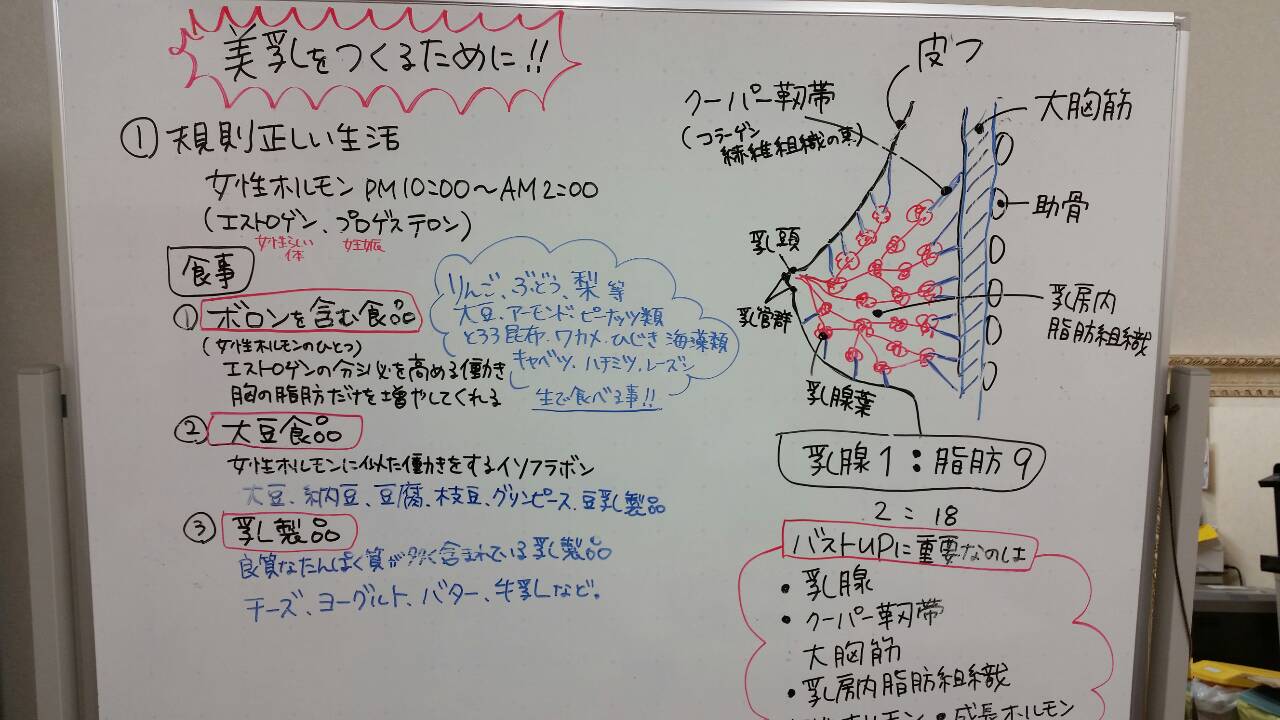 美乳をつくるために!!
① 規則正しい生活
女性ホルモン PM10:00～AM2:00
(エストロゲン、プロゲステロン)
女性らしい体 妊娠
食事
① ボロンを含む食品
(女性ホルモンのひとつ)
エストロゲンの分泌を高める働き
胸の脂肪だけを増やしてくれる
りんご、ぶどう、梨 等
大豆、アーモンド、ピーナッツ類
とろろ昆布、ワカメ、ひじき 海藻類
キャベツ、ハチミツ、レーズン
生で食べる事!!
② 大豆食品
女性ホルモンに似た働きをするイソフラボン
大豆、納豆、豆腐、枝豆、グリンピース、豆乳製品
③ 乳製品
良質なたんぱく質が多く含まれている乳製品
チーズ、ヨーグルト、バター、牛乳など。
皮フ
クーパー靭帯
(コラーゲン
線維組織の束)
大胸筋
助骨
乳頭
乳管群
乳房内
脂肪組織
乳腺葉
乳腺1:脂肪9
2:18
バストUPに重要なのは
・乳腺
・クーパー靭帯
大胸筋
・乳房内脂肪組織
ホルモン・成長ホルモン